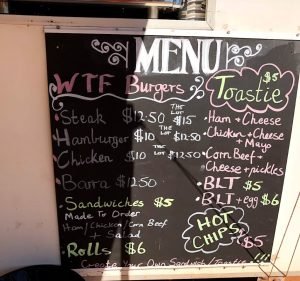 MENU
WTF Burgers
THE LOT
Steak $12.50 $15
THE LOT
Hamburger $10 $12.50
THE LOT
Chicken $10 $12.50
Barra $12.50
Sandwiches $5
Made To Order
Ham/Chicken/Corn Beef
+ Salad
Rolls $6
$5
Toastie
• Ham + Cheese
• Chicken + Cheese
+ Mayo
• Corn Beef +
Cheese + pickles
• BLT $5
• BLT + egg $6
HOT
CHIPS $5
Create Your Own Sandwich/Toastie !!!